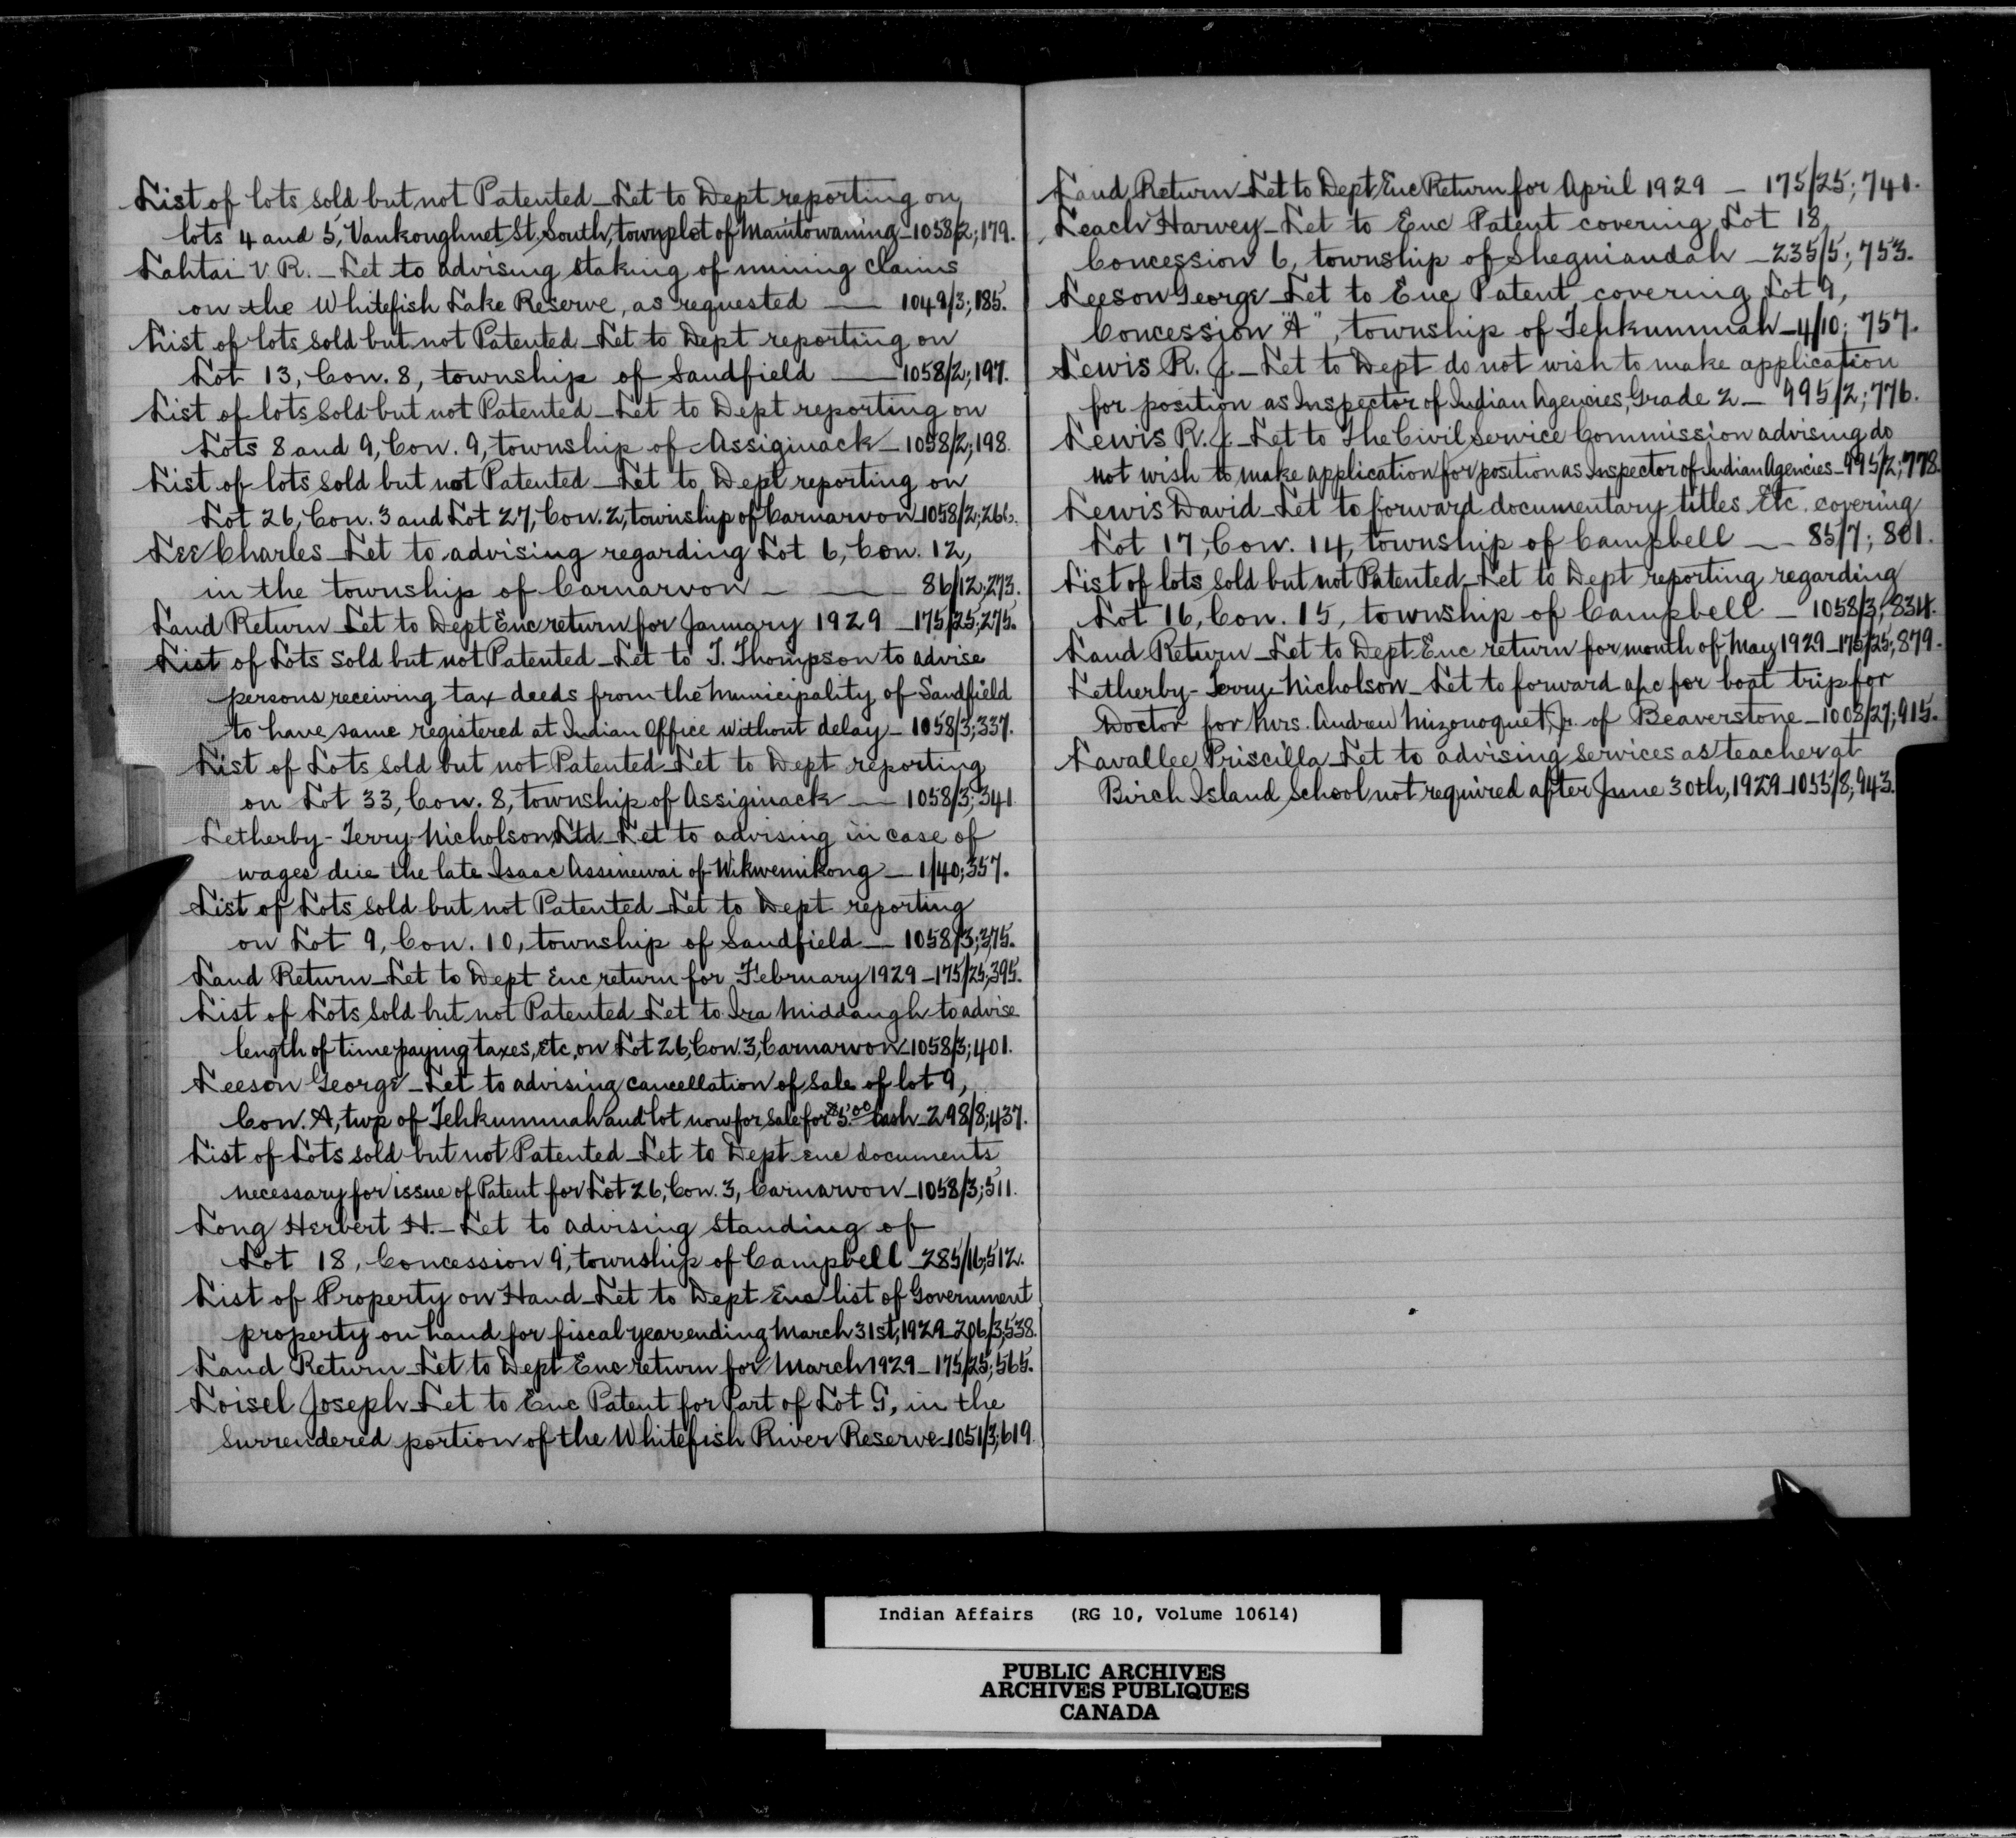 List of lots sold but not Patented_Let to Dept reporting on
lots 4 and 5, Vankoughnet St. South, townplot of Manitowaning_1058/2;179.
Lahtai V.R._Let to advising staking of mining claims
on the Whitefish Lake Reserve, as requested — 1049/3;185.
List of lots sold but not Patented_Let to Dept reporting on
Lot 13, Con. 8, township of Sandfield — 1058/2;197.
List of lots sold but not Patented_Let to Dept reporting on
Lots 8 and 9, Con. 9, township of Assiginack_1058/2;198.
List of lots sold but not Patented_Let to Dept reporting on
Lot 26, Con. 3 and Lot 27, Con. 2, township of Carnarvon_1058/2;266.
Lee Charles_Let to advising regarding Lot 6, Con. 12,
in the township of Carnarvon — 86/12;273.
Land Return_Let to Dept Enc return for January 1929_175/25;275.
List of Lots sold but not Patented_Let to T. Thompson to advise
persons receiving tax deeds from the Municipality of Sandfield
to have same registered at Indian Office without delay_1058/3;337.
List of Lots sold but not Patented_Let to Dept reporting
on Lot 33, Con. 8, township of Assiginack — 1058/3;341
Letherby-Terry-Nicholson, Ltd_Let to advising in case of
wages due the late Isaac Assinewai of Wikwemikong_1/40;357.
List of Lots sold but not Patented_Let to Dept reporting
on Lot 9, Con. 10, township of Sandfield_1058/3;375.
Land Return_Let to Dept Enc return for February 1929_175/25;395.
List of Lots sold but not Patented_Let to Ira Middaugh to advise
length of time paying taxes, etc, on Lot 26, Con. 3, Carnarvon_1058/3;401.
Leeson George_Let to advising cancellation of sale of lot 9,
Con. A, twp of Tehkummah and lot now for sale for $5.00 Cash_298/8;437.
List of Lots sold but not Patented_Let to Dept enc documents
necessary for issue of Patent for Lot 26, Con. 3, Carnarvon_1058/3;511.
Long Herbert H._Let to advising standing of
Lot 18, Concession 9, township of Campbell_285/16;512.
List of Property on Hand_Let to Dept Enc list of Government
property on hand for fiscal year ending March 31st, 1929_206/3;538.
Land Return_Let to Dept Enc return for March 1929_175/25;565.
Loisel Joseph_Let to Enc Patent for Part of Lot G, in the
surrendered portion of the Whitefish River Reserve_1051/3;619.
Land Return_Let to Dept, Enc Return for April 1929 _ 175/25;741.
Leach Harvey_Let to Enc Patent covering Lot 18,
Concession 6, township of Sheguiandah_235/5;753.
Leeson George_Let to Enc Patent covering Lot 9,
Concession "A", township of Tehkummah_4/10;757.
Lewis R.J._Let to Dept do not wish to make application
for position as Inspector of Indian Agencies, Grade 2_995/2;776.
Lewis R.J._Let to The Civil Service Commission advising do
not wish to make application for position as Inspector of Indian Agencies_995/2;778.
Lewis David_Let to forward documentary titles Etc. covering
Lot 17, Con. 14, township of Campbell — 85/7;801.
List of lots sold but not Patented_Let to Dept reporting regarding
Lot 16, Con. 15, township of Campbell _ 1058/3;834.
Land Return_Let to Dept Enc return for month of May 1929_175/25;879.
Letherby-Terry-Nicholson_Let to forward a/c for boat trip for
Doctor for Mrs. Andrew Mizonoquet, Jr. of Beaverstone_1008/27;915.
Lavallee Priscilla_Let to advising services as teacher at
Birch Island School, not required after June 30th, 1929_1055/8;943.
Indian Affairs (RG 10, Volume 10614)
PUBLIC ARCHIVES
ARCHIVES PUBLIQUES
CANADA